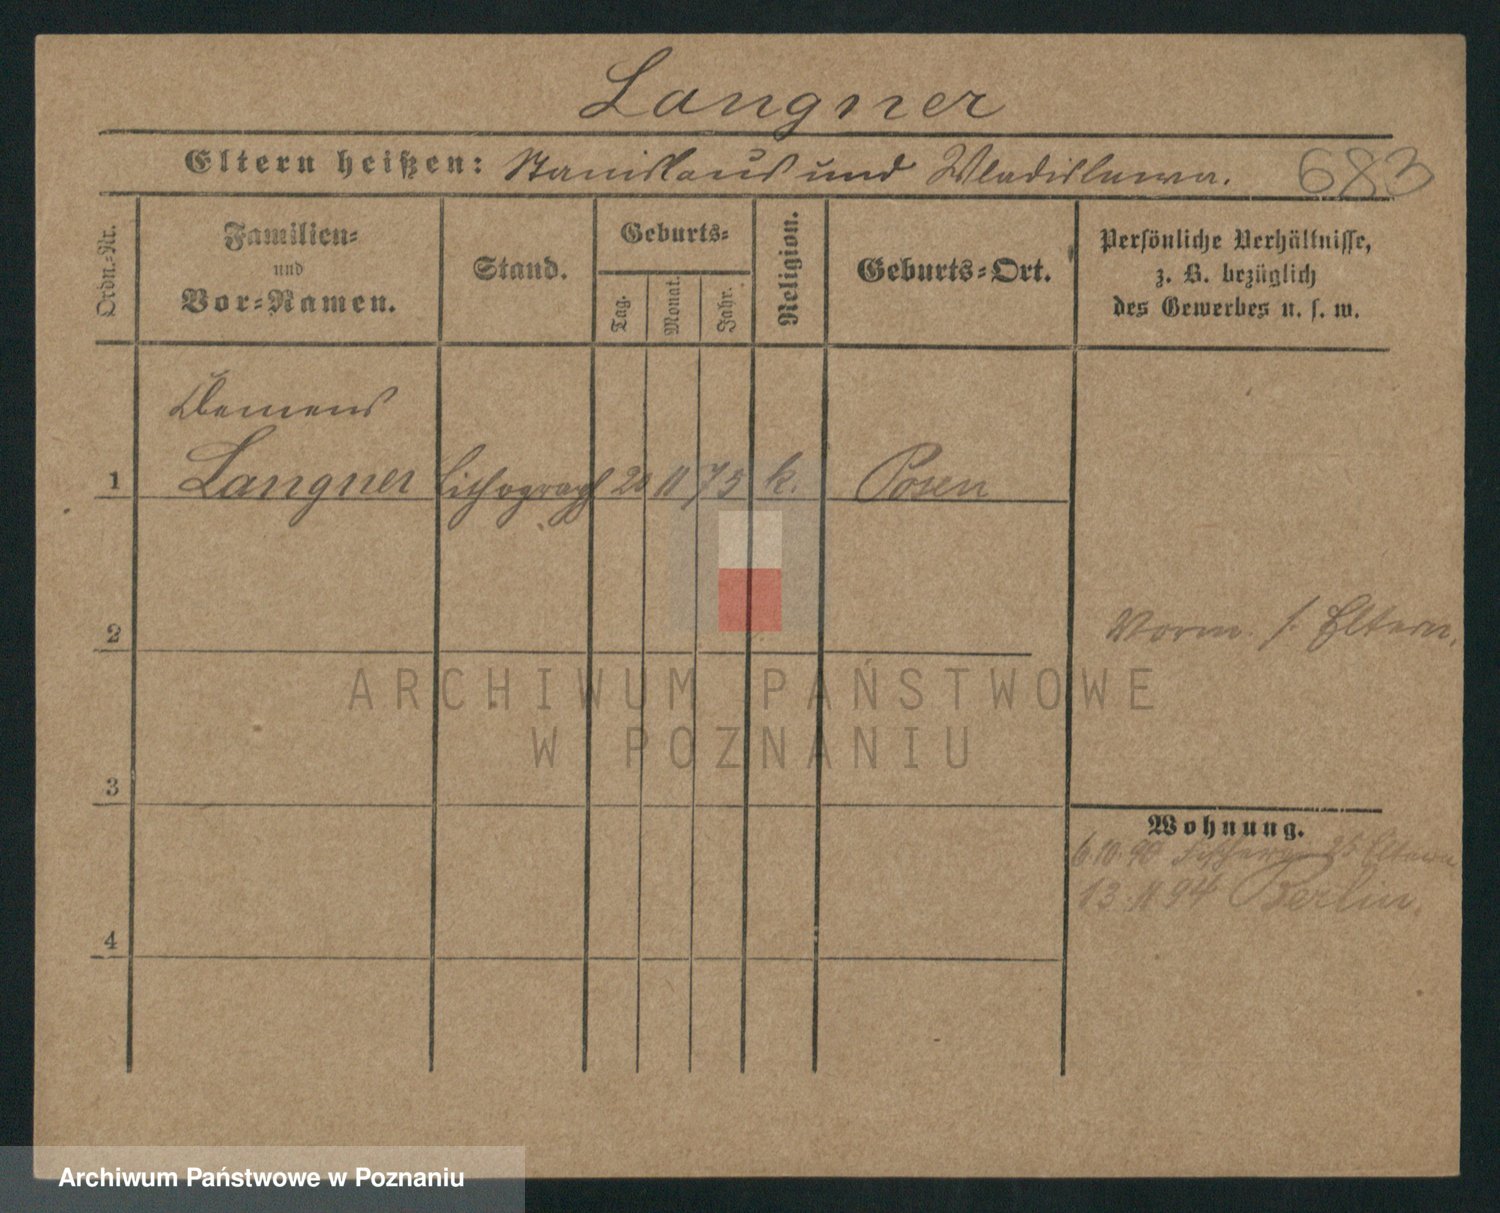 Langner
Eltern heißen: Stanislaus und Wladislawa. 683
Ordn.-Nr.
Familien-
und
Vor-Namen.
Stand.
Geburts-
Tag.
Monat.
Jahr.
Religion.
Geburts-Ort.
Persönliche Verhältnisse,
z. B. bezüglich
des Gewerbes u. s. w.
Clemens
1 Langner Lithograph 20 11 75 k. Posen
2
Vorm. s. Eltern.
3
Wohnung.
6.10.90 25 Eltern
13.11.94 Berlin.
4
ARCHIWUM PAŃSTWOWE
W POZNANIU
Archiwum Państwowe w Poznaniu